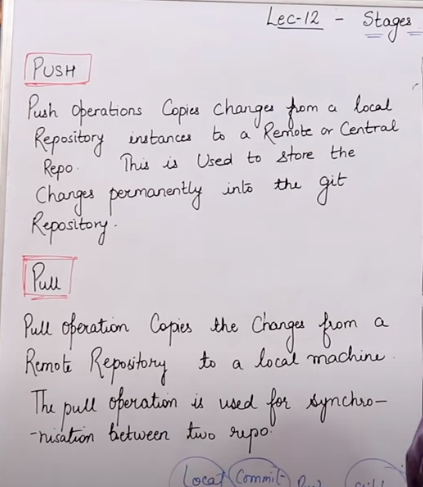 Lec-12 - Stages
PUSH
Push operations Copies changes from a local
Repository instances to a Remote or Central
Repo. This is Used to store the
Changes permanently into the git
Repository.
Pull
Pull operation Copies the Changes from a
Remote Repository to a local machine.
The pull operation is used for synchro-
-nisation between two repo.
Local Commit